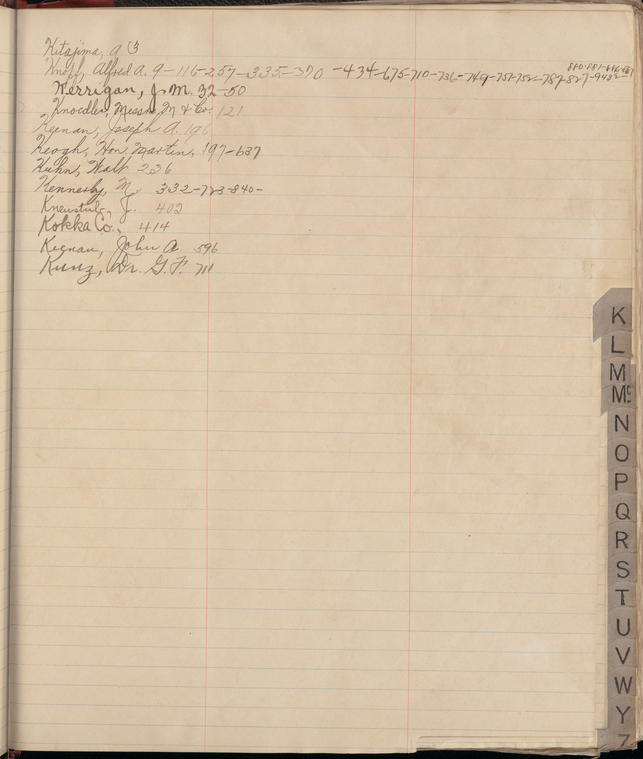 Kitajima, A 3
880-881-886-887
Knopf, Alfred A. 9-116-257-335-370-434-675-710-736-749-751-752-787-827-948
Kerrigan, J. M. 32-50
Knoedler, Messrs M & Co. 121
Keenan, Joseph A. 196
Keogh, Hon Martin, 197-637
Kuhn, Walt 236
Kennerly, M. 332-723-840-
J. 402
Kokka Co., 414
Keenan, John A 596
Kunz, Dr. G. F. 711
K
L
M
Mc
N
O
P
Q
R
S
T
U
V
W
Y
Z